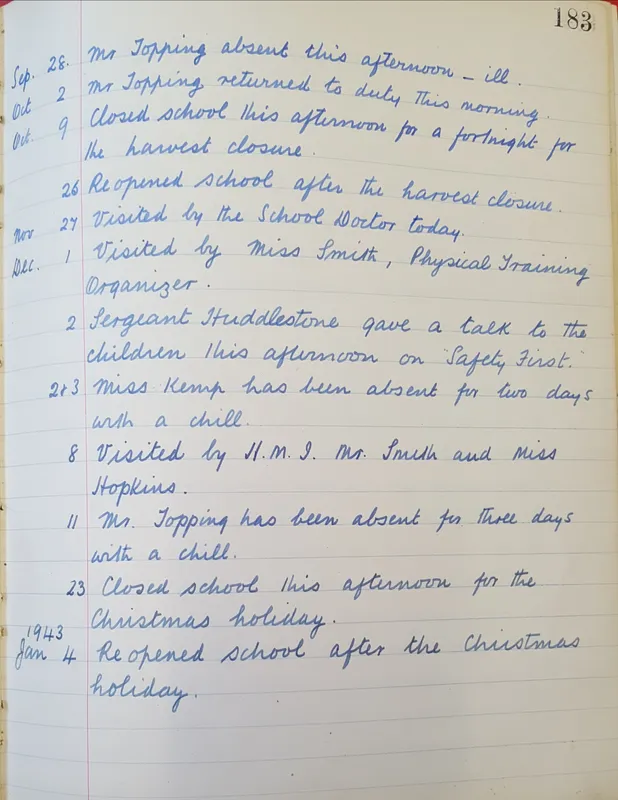 183
Sep. 28. Mr Topping absent this afternoon – ill.
Oct 2 Mr Topping returned to duty this morning.
Oct. 9 Closed school this afternoon for a fortnight for
the harvest closure.
26 Reopened school after the harvest closure.
Nov 27 Visited by the School Doctor today.
Dec. 1 Visited by Miss Smith, Physical Training
Organizer.
2 Sergeant Huddlestone gave a talk to the
children this afternoon on "Safety First."
2+3 Miss Kemp has been absent for two days
with a chill.
8 Visited by H.M.I. Mr. Smith and Miss
Hopkins.
11 Mr. Topping has been absent for three days
with a chill.
23 Closed school this afternoon for the
Christmas holiday.
1943
Jan 4 Reopened school after the Christmas
holiday.